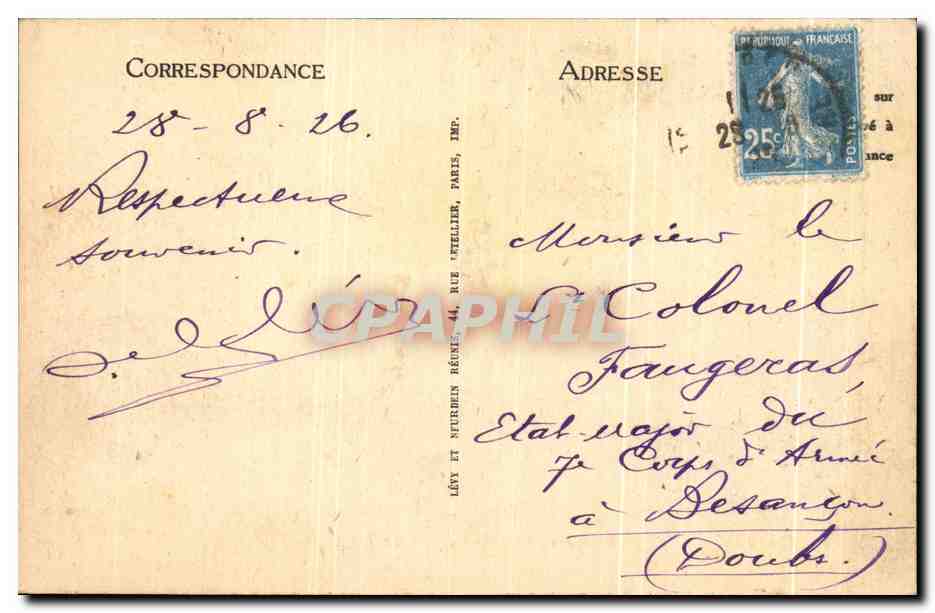 CORRESPONDANCE
28-8-26.
Respectueux
souvenir.
LÉVY ET NEURDEIN RÉUNIS, 44, RUE LETELLIER, PARIS, IMP.
ADRESSE
RÉPUBLIQUE FRANÇAISE
25c
POSTES
sur
é à
ance
Monsieur le
Lt Colonel
Faugeras
Etat-major du
7e Corps d'Armée
à Besançon.
(Doubs.)
CPAPHIL